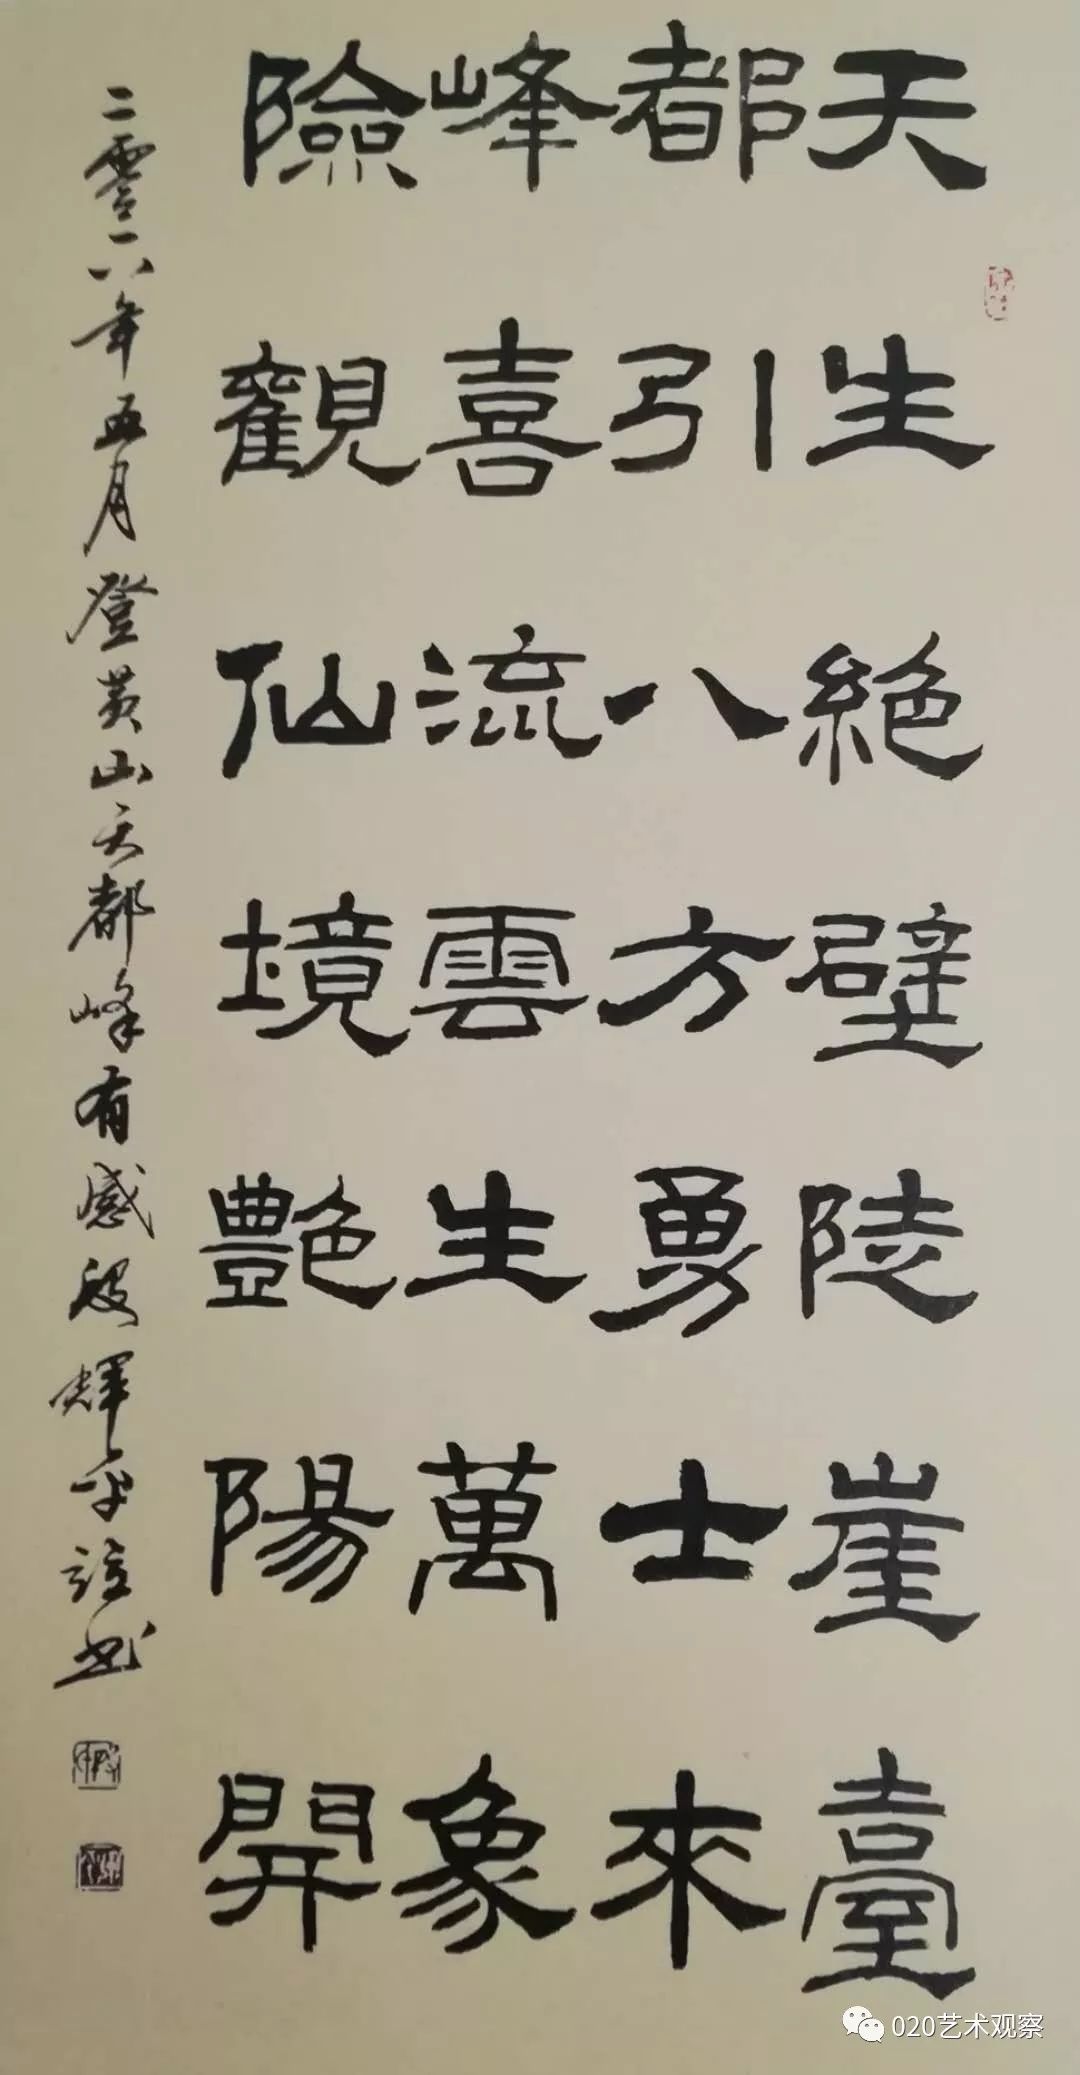 天生絕壁陡崖臺
都引八方勇士來
峰喜流雲生萬象
險觀仙境艷陽開
二零一八年五月登黄山天都峰有感段輝平詩书
020艺术观察